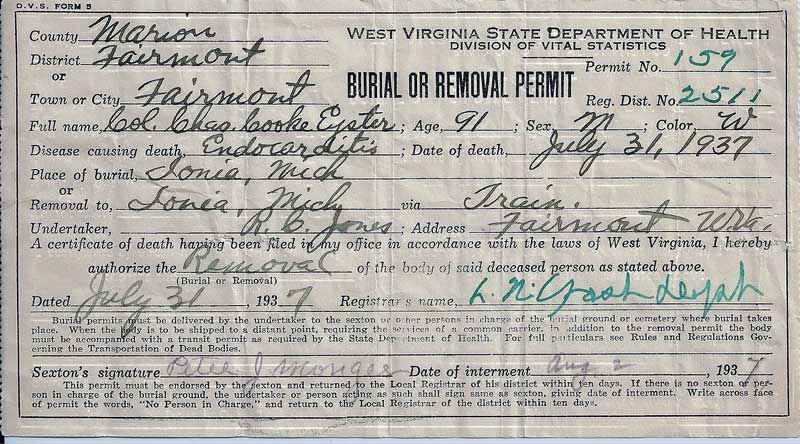 D.V.S. FORM 5
WEST VIRGINIA STATE DEPARTMENT OF HEALTH
DIVISION OF VITAL STATISTICS
County Marion
District Fairmont
or
Town or City Fairmont
BURIAL OR REMOVAL PERMIT
Permit No. 159
Reg. Dist. No. 2511
Full name, Col. Chas. Cooke Eyster ; Age, 91 ; Sex, M ; Color, W
Disease causing death, Endocarditis ; Date of death, July 31, 1937
Place of burial, Ionia, Mich
or
Removal to, Ionia, Mich via Train.
Undertaker, R. C. Jones ; Address Fairmont W.Va.
A certificate of death having been filed in my office in accordance with the laws of West Virginia, I hereby
authorize the Removal of the body of said deceased person as stated above.
(Burial or Removal)
Dated July 31, 1937 Registrar's name,
Burial permits must be delivered by the undertaker to the sexton or other persons in charge of the burial ground or cemetery where burial takes
place. When the body is to be shipped to a distant point, requiring the services of a common carrier, in addition to the removal permit the body
must be accompanied with a transit permit as required by the State Department of Health. For full particulars see Rules and Regulations Gov-
erning the Transportation of Dead Bodies.
Sexton's signature Peter J Monger Date of interment Aug 2, 1937
This permit must be endorsed by the sexton and returned to the Local Registrar of his district within ten days. If there is no sexton or per-
son in charge of the burial ground, the undertaker or person acting as such shall sign same as sexton, giving date of interment. Write across face
of permit the words, "No Person in Charge," and return to the Local Registrar of the district within ten days.